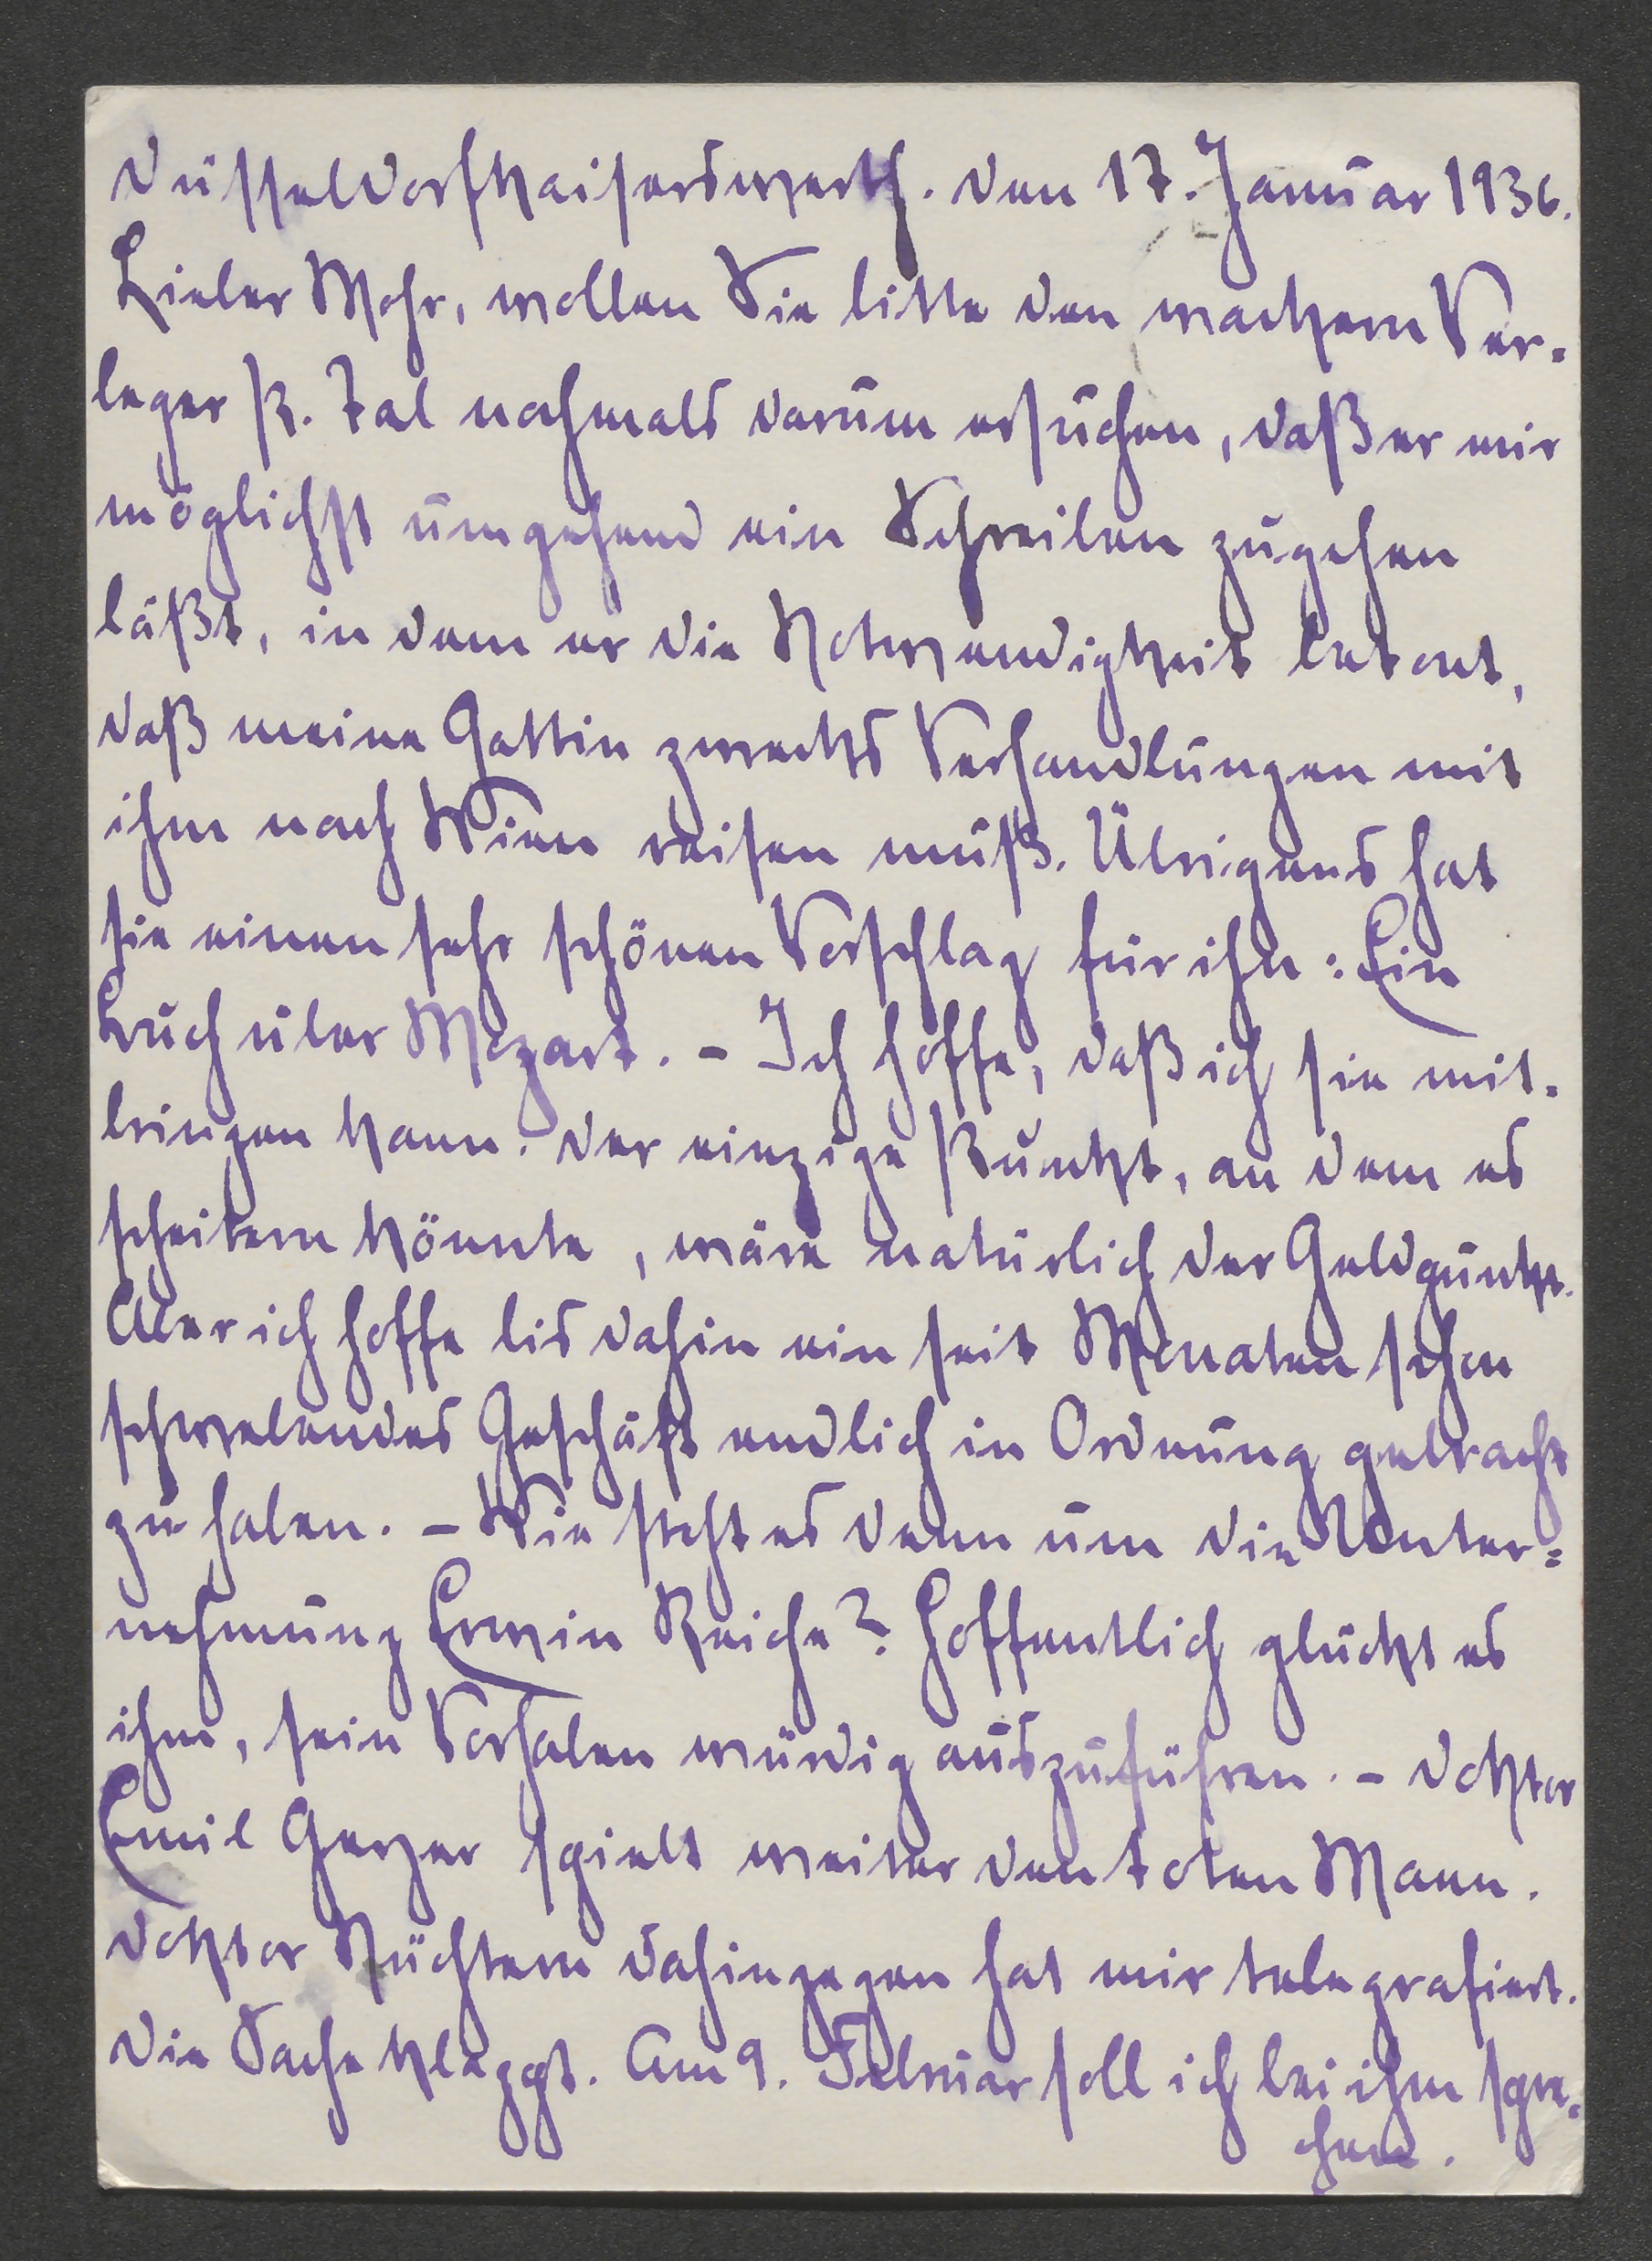 Düsseldorf Kaiserswerth. Den 17. Januar 1936.
Lieber Mohr, wollen Sie bitte den wackern Ver=
leger P. Zal nochmals darum ersuchen, daß er mir
möglichst umgehend ein Schreiben zugehen
läßt, in dem er die Notwendigkeit betont,
daß meine Gattin zwecks Verhandlungen mit
ihm nach Wien reisen muß. Übrigens hat
sie einen sehr schönen Vorschlag für ihn: Ein
Buch über Mozart. – Ich hoffe, daß ich sie mit=
bringen kann. Der einzige Punckt, an dem es
scheitern könnte, wäre natürlich der Geldpunckt.
Aber ich hoffe bis dahin ein seit Monaten schon
schwelendes Geschäft endlich in Ordnung gebracht
zu haben. – Wie steht es denn um die Unter=
nehmung Erwin Reiche? Hoffentlich glückt es
ihm, sein Vorhaben würdig auszuführen. – Doktor
Emil Geyer spielt weiter den toten Mann.
Doktor Nüchtern dahingegen hat mir telegrafiert.
Die Sache klappt. Am 9. Februar soll ich bei ihm spre=
chen.